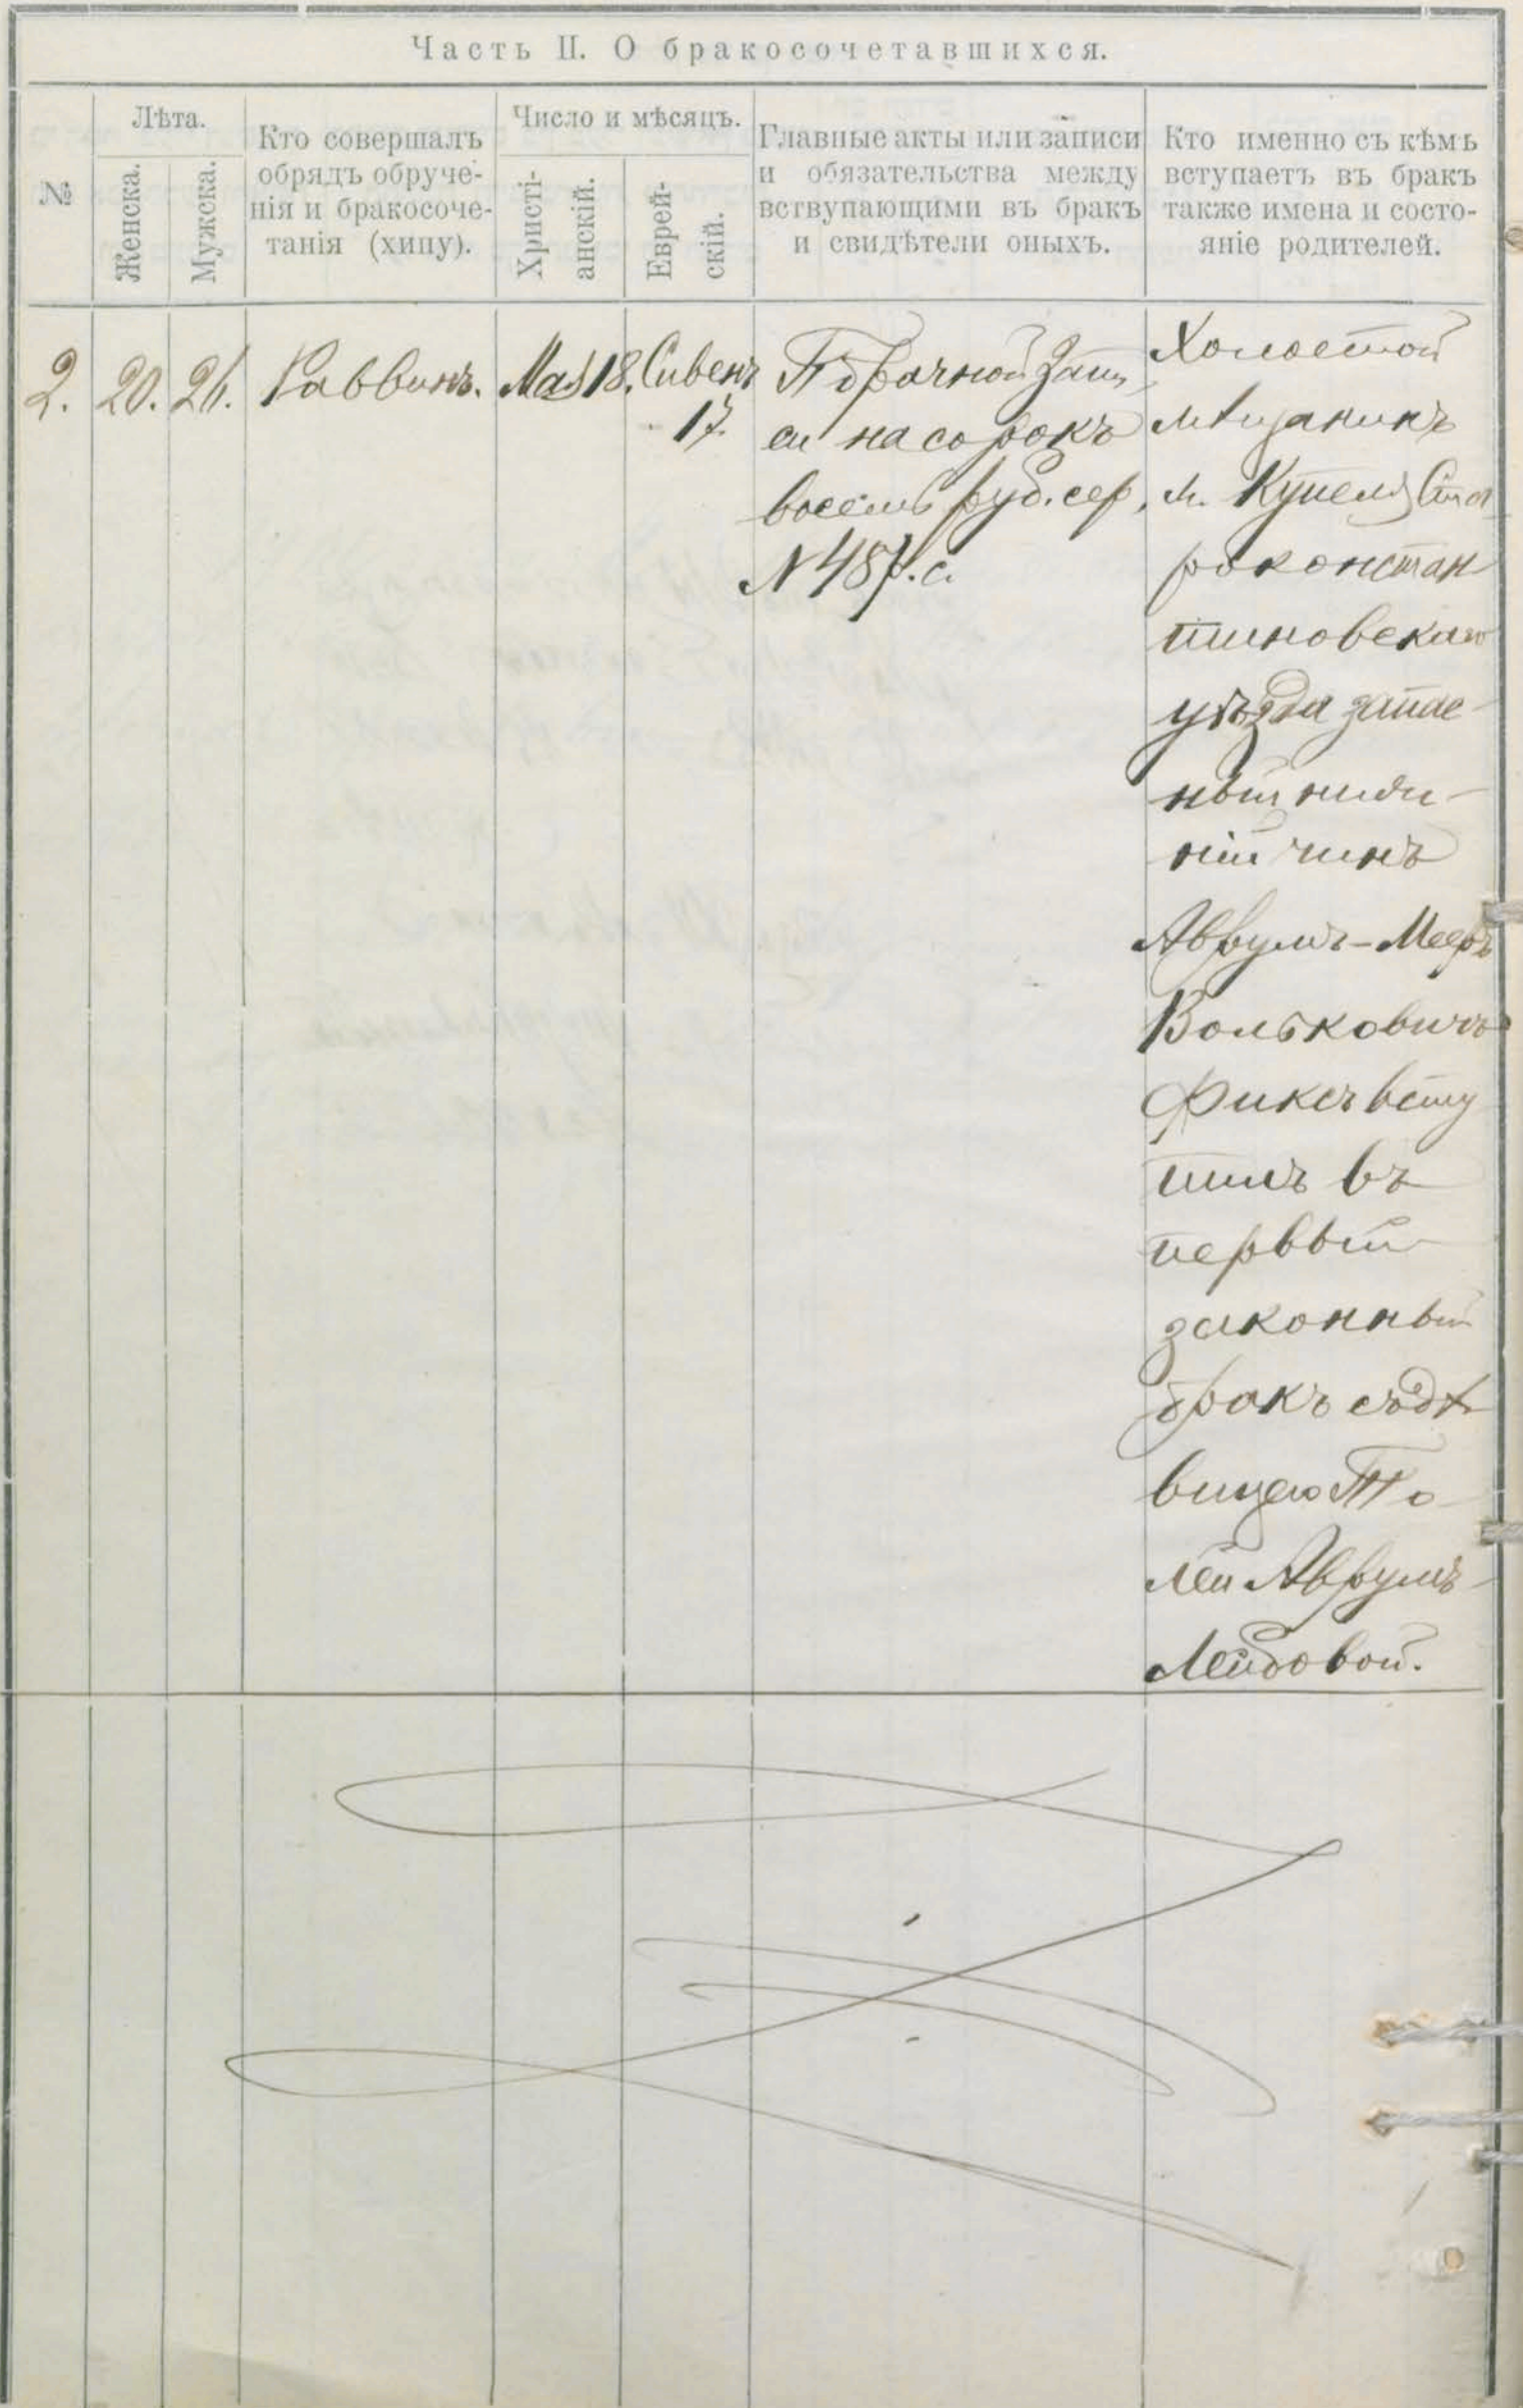 Часть II. О бракосочетавшихся.
№
Лѣта.
Женска.
Мужска.
Кто совершалъ
обрядъ обруче-
нія и бракосоче-
танія (хипу).
Число и мѣсяцъ.
Христі-
анскій.
Еврей-
скій.
Главные акты или записи
и обязательства между
вствупающими въ бракъ
и свидѣтели оныхъ.
Кто именно съ кѣмъ
вступаетъ въ бракъ
также имена и состо-
яніе родителей.
2.
20.
26.
Раввинъ.
Мая 18.
Сивенъ
17.
По брачной запи
си на сорокъ
восемь руб. сер.
№ 48 р. с.
Холостой
мѣщанинъ
м. Купеля Ста
роконстан
тиновскаго
уѣзда запас-
ный ниж-
ній чинъ
Аврумъ-Мееръ
Вольковичъ
Фиксъ всту
пилъ въ
первый
законный
бракъ съ дѣ
вицею
Аврумъ-
Лейбовой.